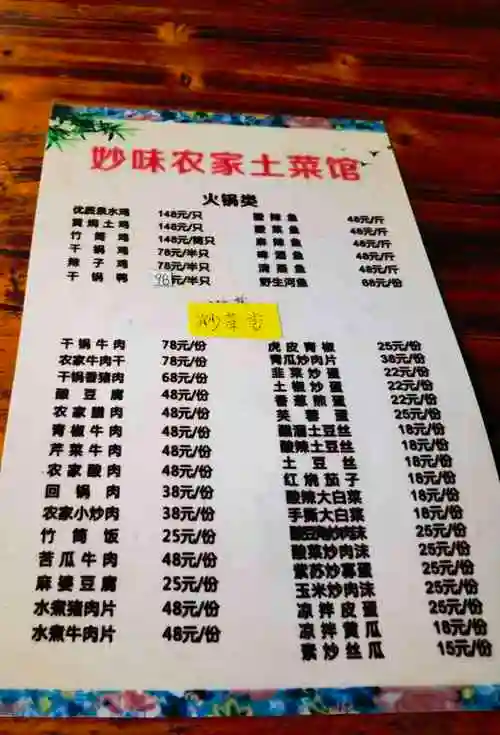 妙味农家土菜馆
火锅类
优质泉水鸡 148元/只
黄焖土鸡 148元/只
竹筒鸡 148元/筒只
干锅鸡 78元/半只
辣子鸡 78元/半只
干锅鸭 98元/半只
酸辣鱼 48元/斤
酸菜鱼 48元/斤
麻辣鱼 48元/斤
啤酒鱼 48元/斤
清蒸鱼 48元/斤
野生河鱼 68元/份
炒菜类
干锅牛肉 78元/份
农家牛肉干 78元/份
干锅香猪肉 68元/份
酸豆腐 48元/份
农家腊肉 48元/份
青椒牛肉 48元/份
芹菜牛肉 48元/份
农家酸肉 48元/份
回锅肉 38元/份
农家小炒肉 38元/份
竹筒饭 25元/份
苦瓜牛肉 48元/份
麻婆豆腐 25元/份
水煮猪肉片 48元/份
水煮牛肉片 48元/份
虎皮青椒 25元/份
青瓜炒肉片 38元/份
韭菜炒蛋 22元/份
土椒炒蛋 22元/份
香葱煎蛋 22元/份
芙蓉蛋 25元/份
醋溜土豆丝 18元/份
酸辣土豆丝 18元/份
土豆丝 18元/份
红烧茄子 18元/份
酸辣大白菜 18元/份
手撕大白菜 18元/份
酸豆角炒肉沫 25元/份
酸菜炒肉沫 25元/份
紫苏炒寡蛋 25元/份
玉米炒肉沫 25元/份
凉拌皮蛋 25元/份
凉拌黄瓜 18元/份
素炒丝瓜 15元/份